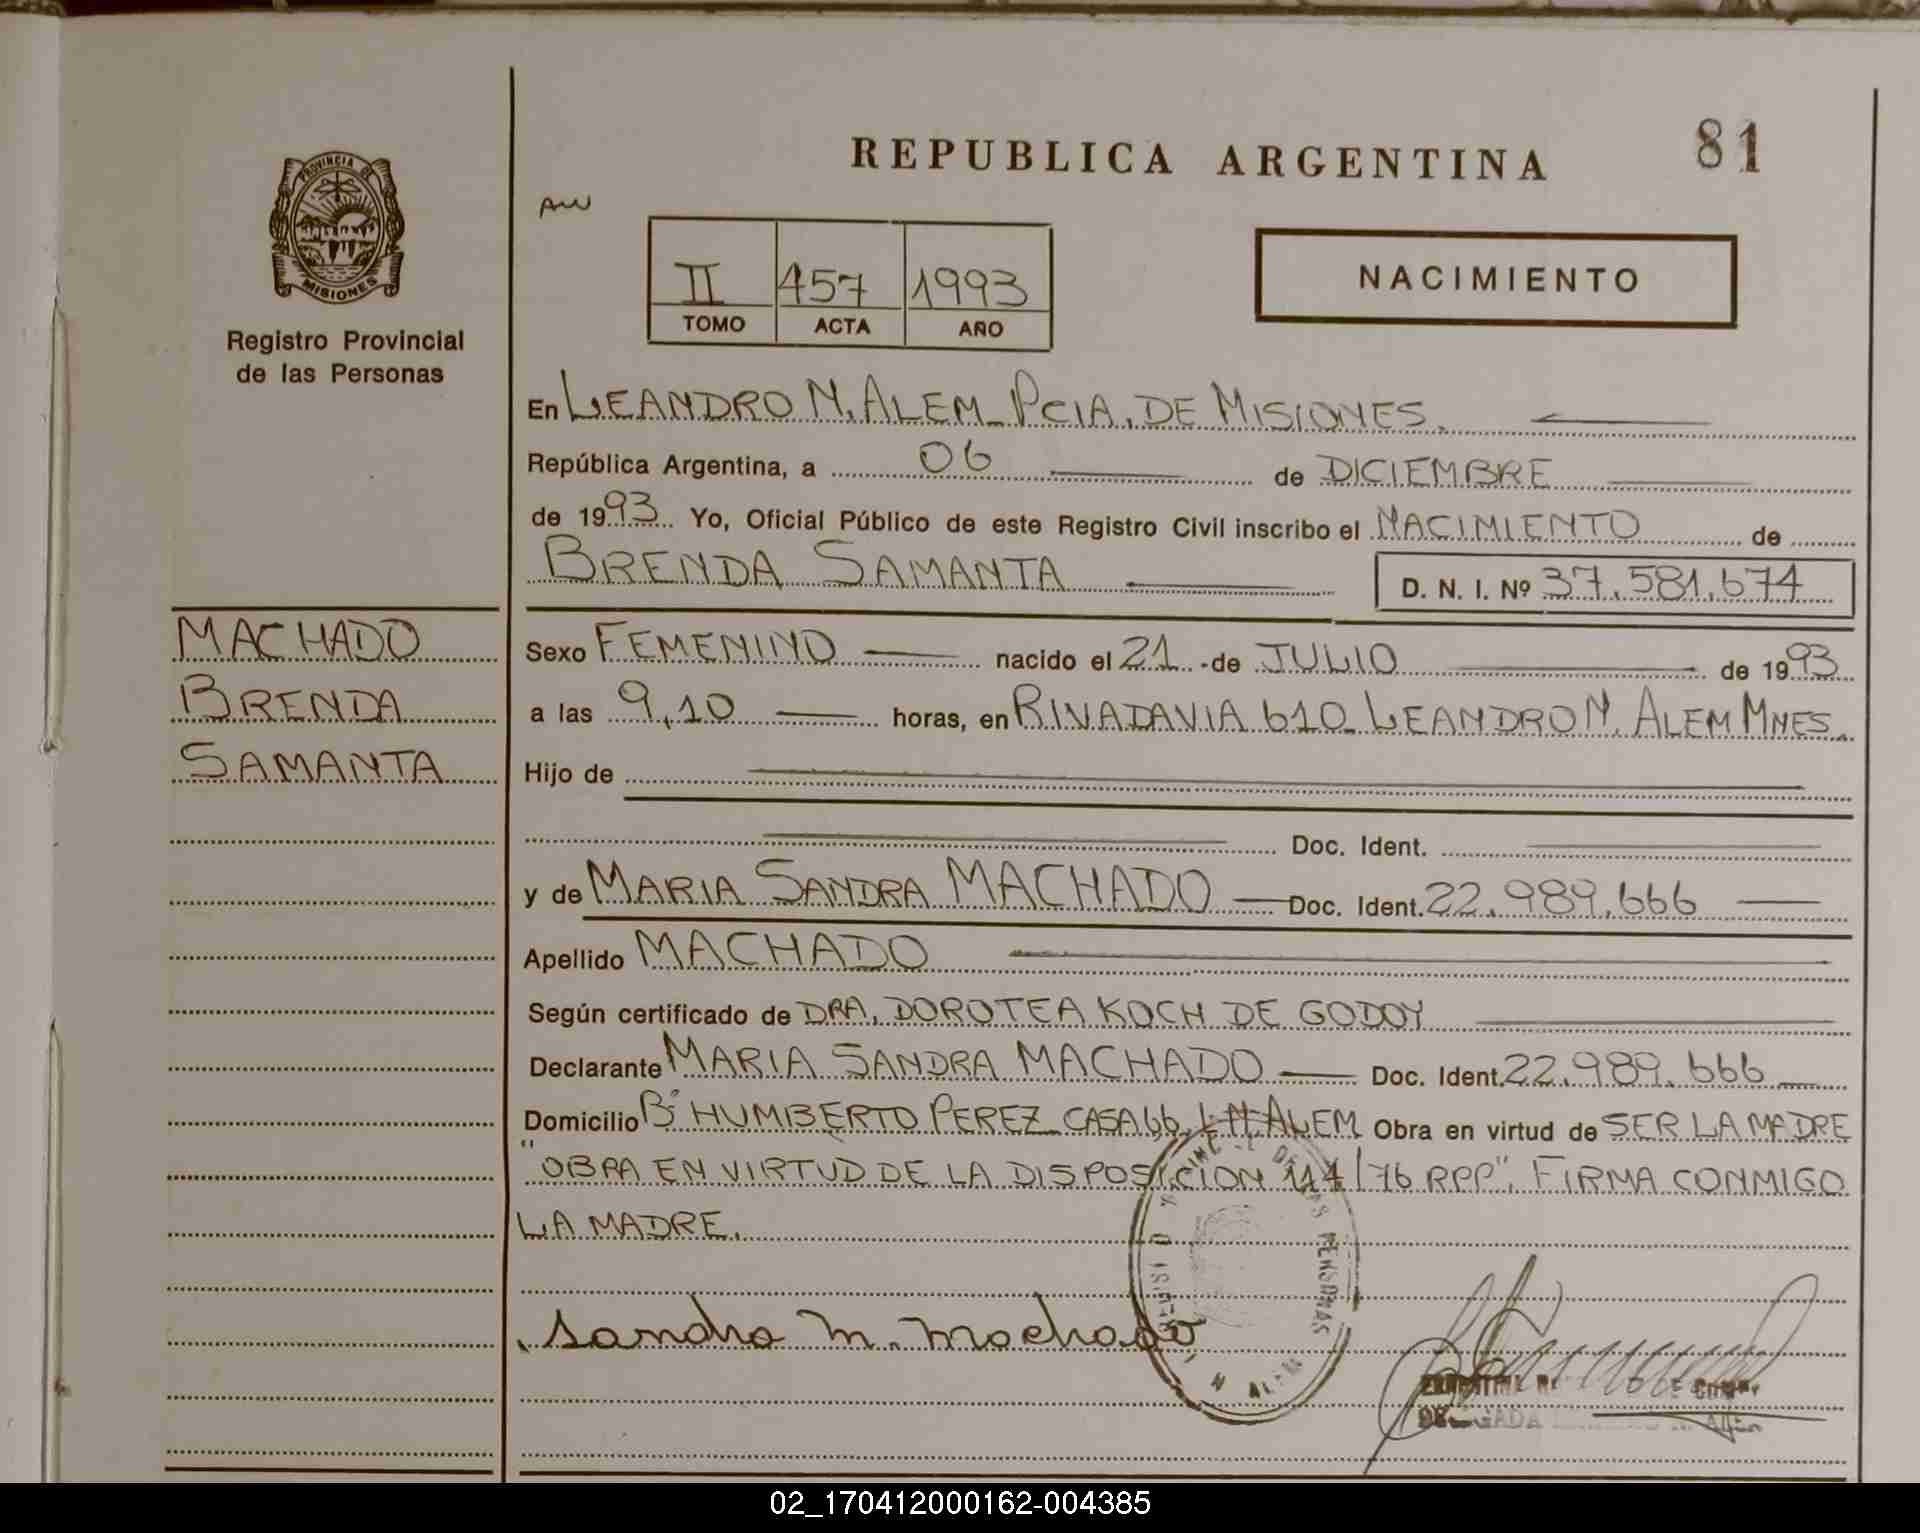 REPUBLICA ARGENTINA
81
PROVINCIA DE
MISIONES
Registro Provincial
de las Personas
AW
II 457 1993
TOMO ACTA AÑO
NACIMIENTO
En LEANDRO N. ALEM_ PCIA. DE MISIONES.
República Argentina, a 06 de DICIEMBRE
de 1993. Yo, Oficial Público de este Registro Civil inscribo el NACIMIENTO de
BRENDA SAMANTA D. N. I. Nº 37.581.674
MACHADO
BRENDA
SAMANTA
Sexo FEMENINO nacido el 21 de JULIO de 1993
a las 9,10 horas, en RIVADAVIA 610_ LEANDRO N. ALEM MNES.
Hijo de
Doc. Ident.
y de MARIA SANDRA MACHADO Doc. Ident. 22.989.666
Apellido MACHADO
Según certificado de DRA. DOROTEA KOCH DE GODOY
Declarante MARIA SANDRA MACHADO Doc. Ident. 22.989.666
Domicilio Bº HUMBERTO PEREZ_ CASA 66. L N ALEM Obra en virtud de SER LA MADRE
"OBRA EN VIRTUD DE LA DISPOSICION 114/76 RPP". FIRMA CONMIGO
LA MADRE.
Sandra M. Machado
PERSONAS
02_170412000162-004385